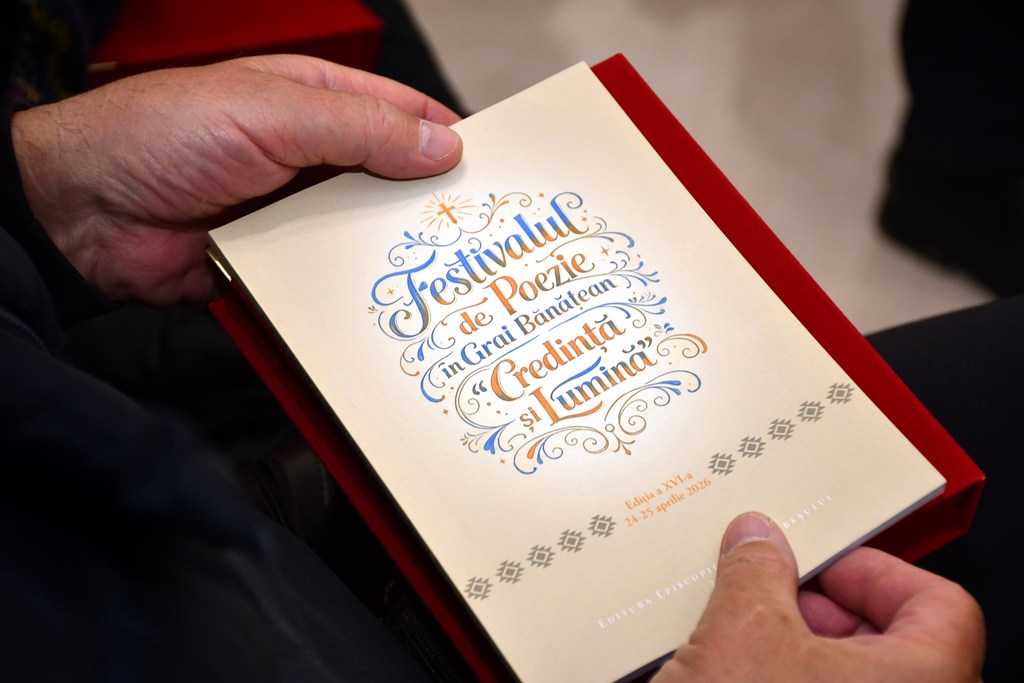 Festivalul
de Poezie
în Grai Bănățean
“Credință
și Lumină”
Ediția a XVI-a
24-25 aprilie 2026
Editura Episcopiei